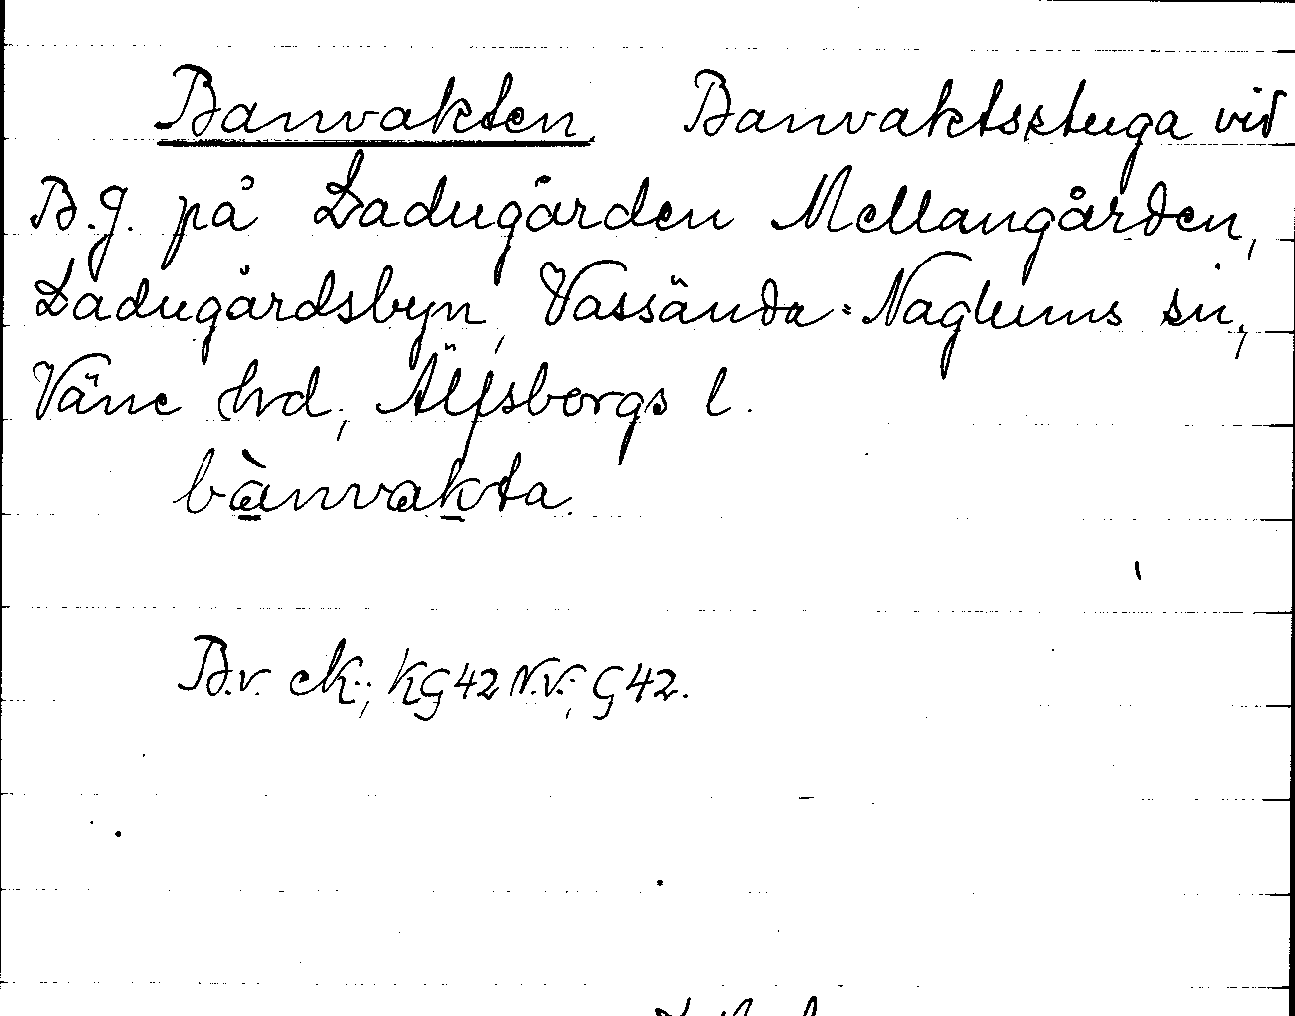 Banvakten. Banvaktsstuga vid
B.J. på Ladugården Mellangården,
Ladugårdsbyn, Vassända-Naglums sn,
Väne hrd, Älfsborgs l.
bànvakta.
B.v. ek.; KG 42 N.V.; G 42.